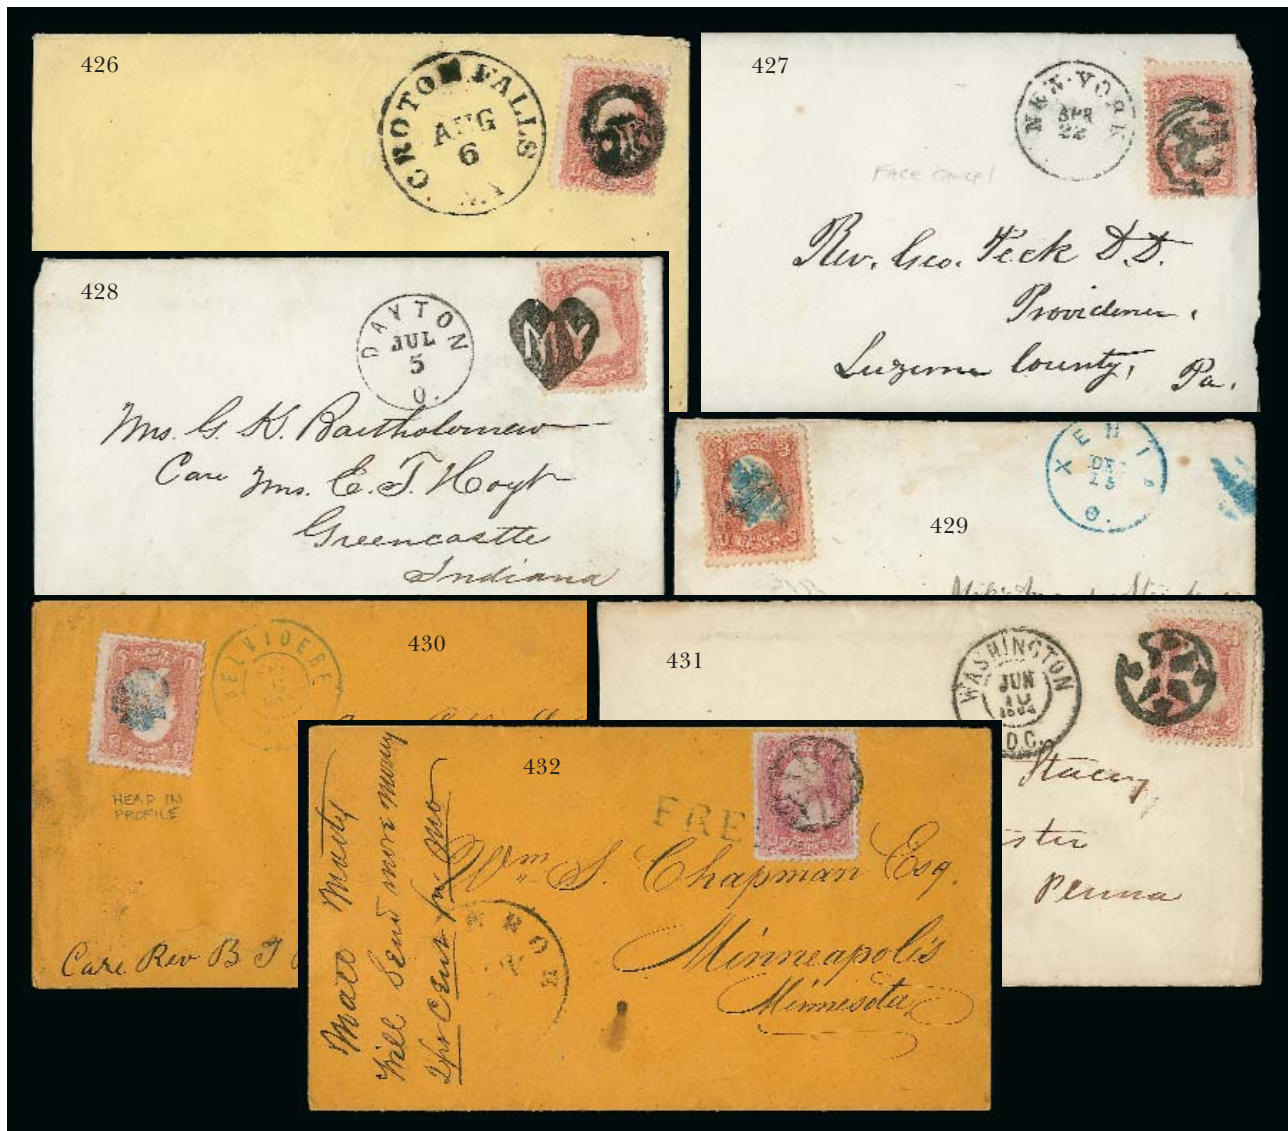 426
CROTON FALLS
AUG
6
N.Y
427
NEW-YORK
APR
22
FACE Cancel
Rev. Geo. Peck D.D.
Providence,
Luzerne County,
Pa.
428
DAYTON
JUL
5
O.
MY
Mrs. G. K. Bartholomew
Care Mrs. E. T. Hoyt
Greencastle
Indiana
429
XENIA
DEC
O.
430
BELVIDERE
HEAD IN
PROFILE
Care Rev B T
431
WASHINGTON
JUN
10
D.C.
Stacey
ster
Penna
432
FREE
Wm S. Chapman Esq.
Minneapolis
Minnesota
will send more money
2 per cent